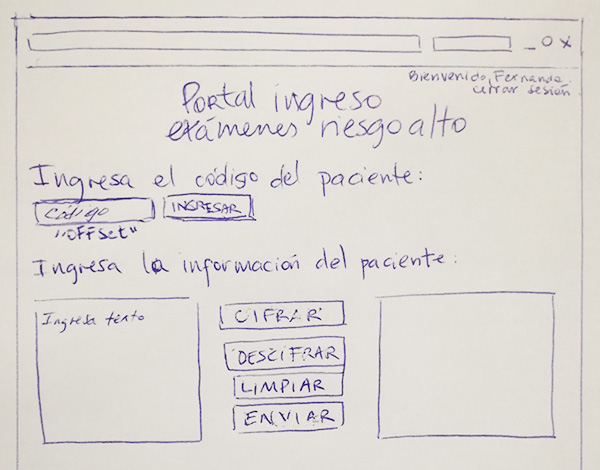 _ O X
Bienvenido, Fernanda.
cerrar sesión
Portal ingreso
exámenes riesgo alto
Ingresa el código del paciente:
Código INGRESAR
"OFFset"
Ingresa la información del paciente:
Ingresa texto
CIFRAR
DESCIFRAR
LIMPIAR
ENVIAR